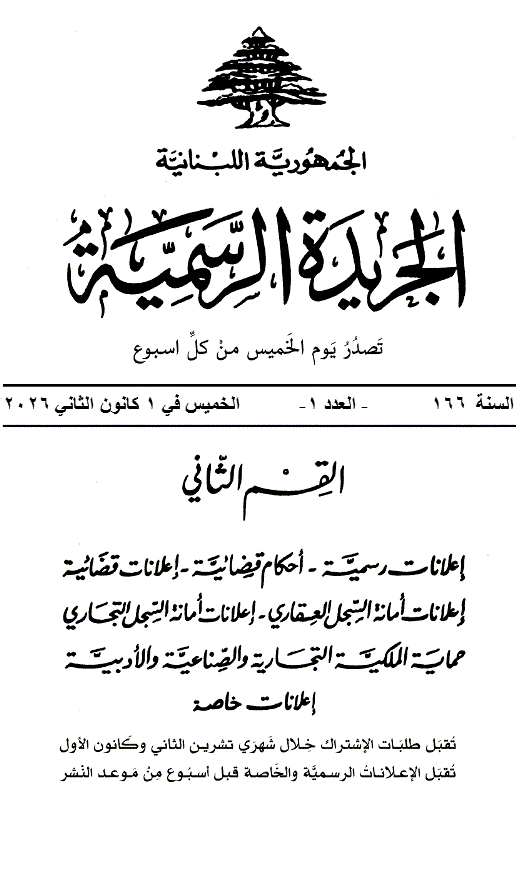 الجمهورية اللبنانية
الجريدة الرسمية
تَصدُرُ يَوم الخَميس منْ كلِّ اسبوع
السنة ١٦٦ - العدد ١- الخميس في ١ كانون الثاني ٢٠٢٦
القِسْم الثّاني
إعلانات رسميَّة - أحكام قضائيَّة - إعلانات قضائية
إعلانات أمانة السّجل العقاري - إعلانات أمانة السّجل التجاري
حماية الملكيَّة التجارية والصّناعيَّة والأدبيَّة
إعلانات خاصة
تُقبَل طلبَات الإشتراك خِلال شَهرَي تشرين الثاني وكَانون الأول
تُقبَل الإعلاناتُ الرسميَّة والخَاصة قبل أسبُوع مِنْ مَوعد النّشر